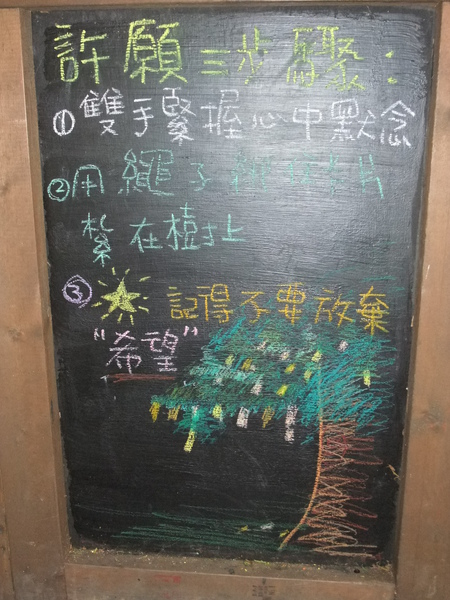 許願三步驟:
①雙手緊握心中默念
②用繩子卡片
紮在樹上
③記得不要放棄
"希望"